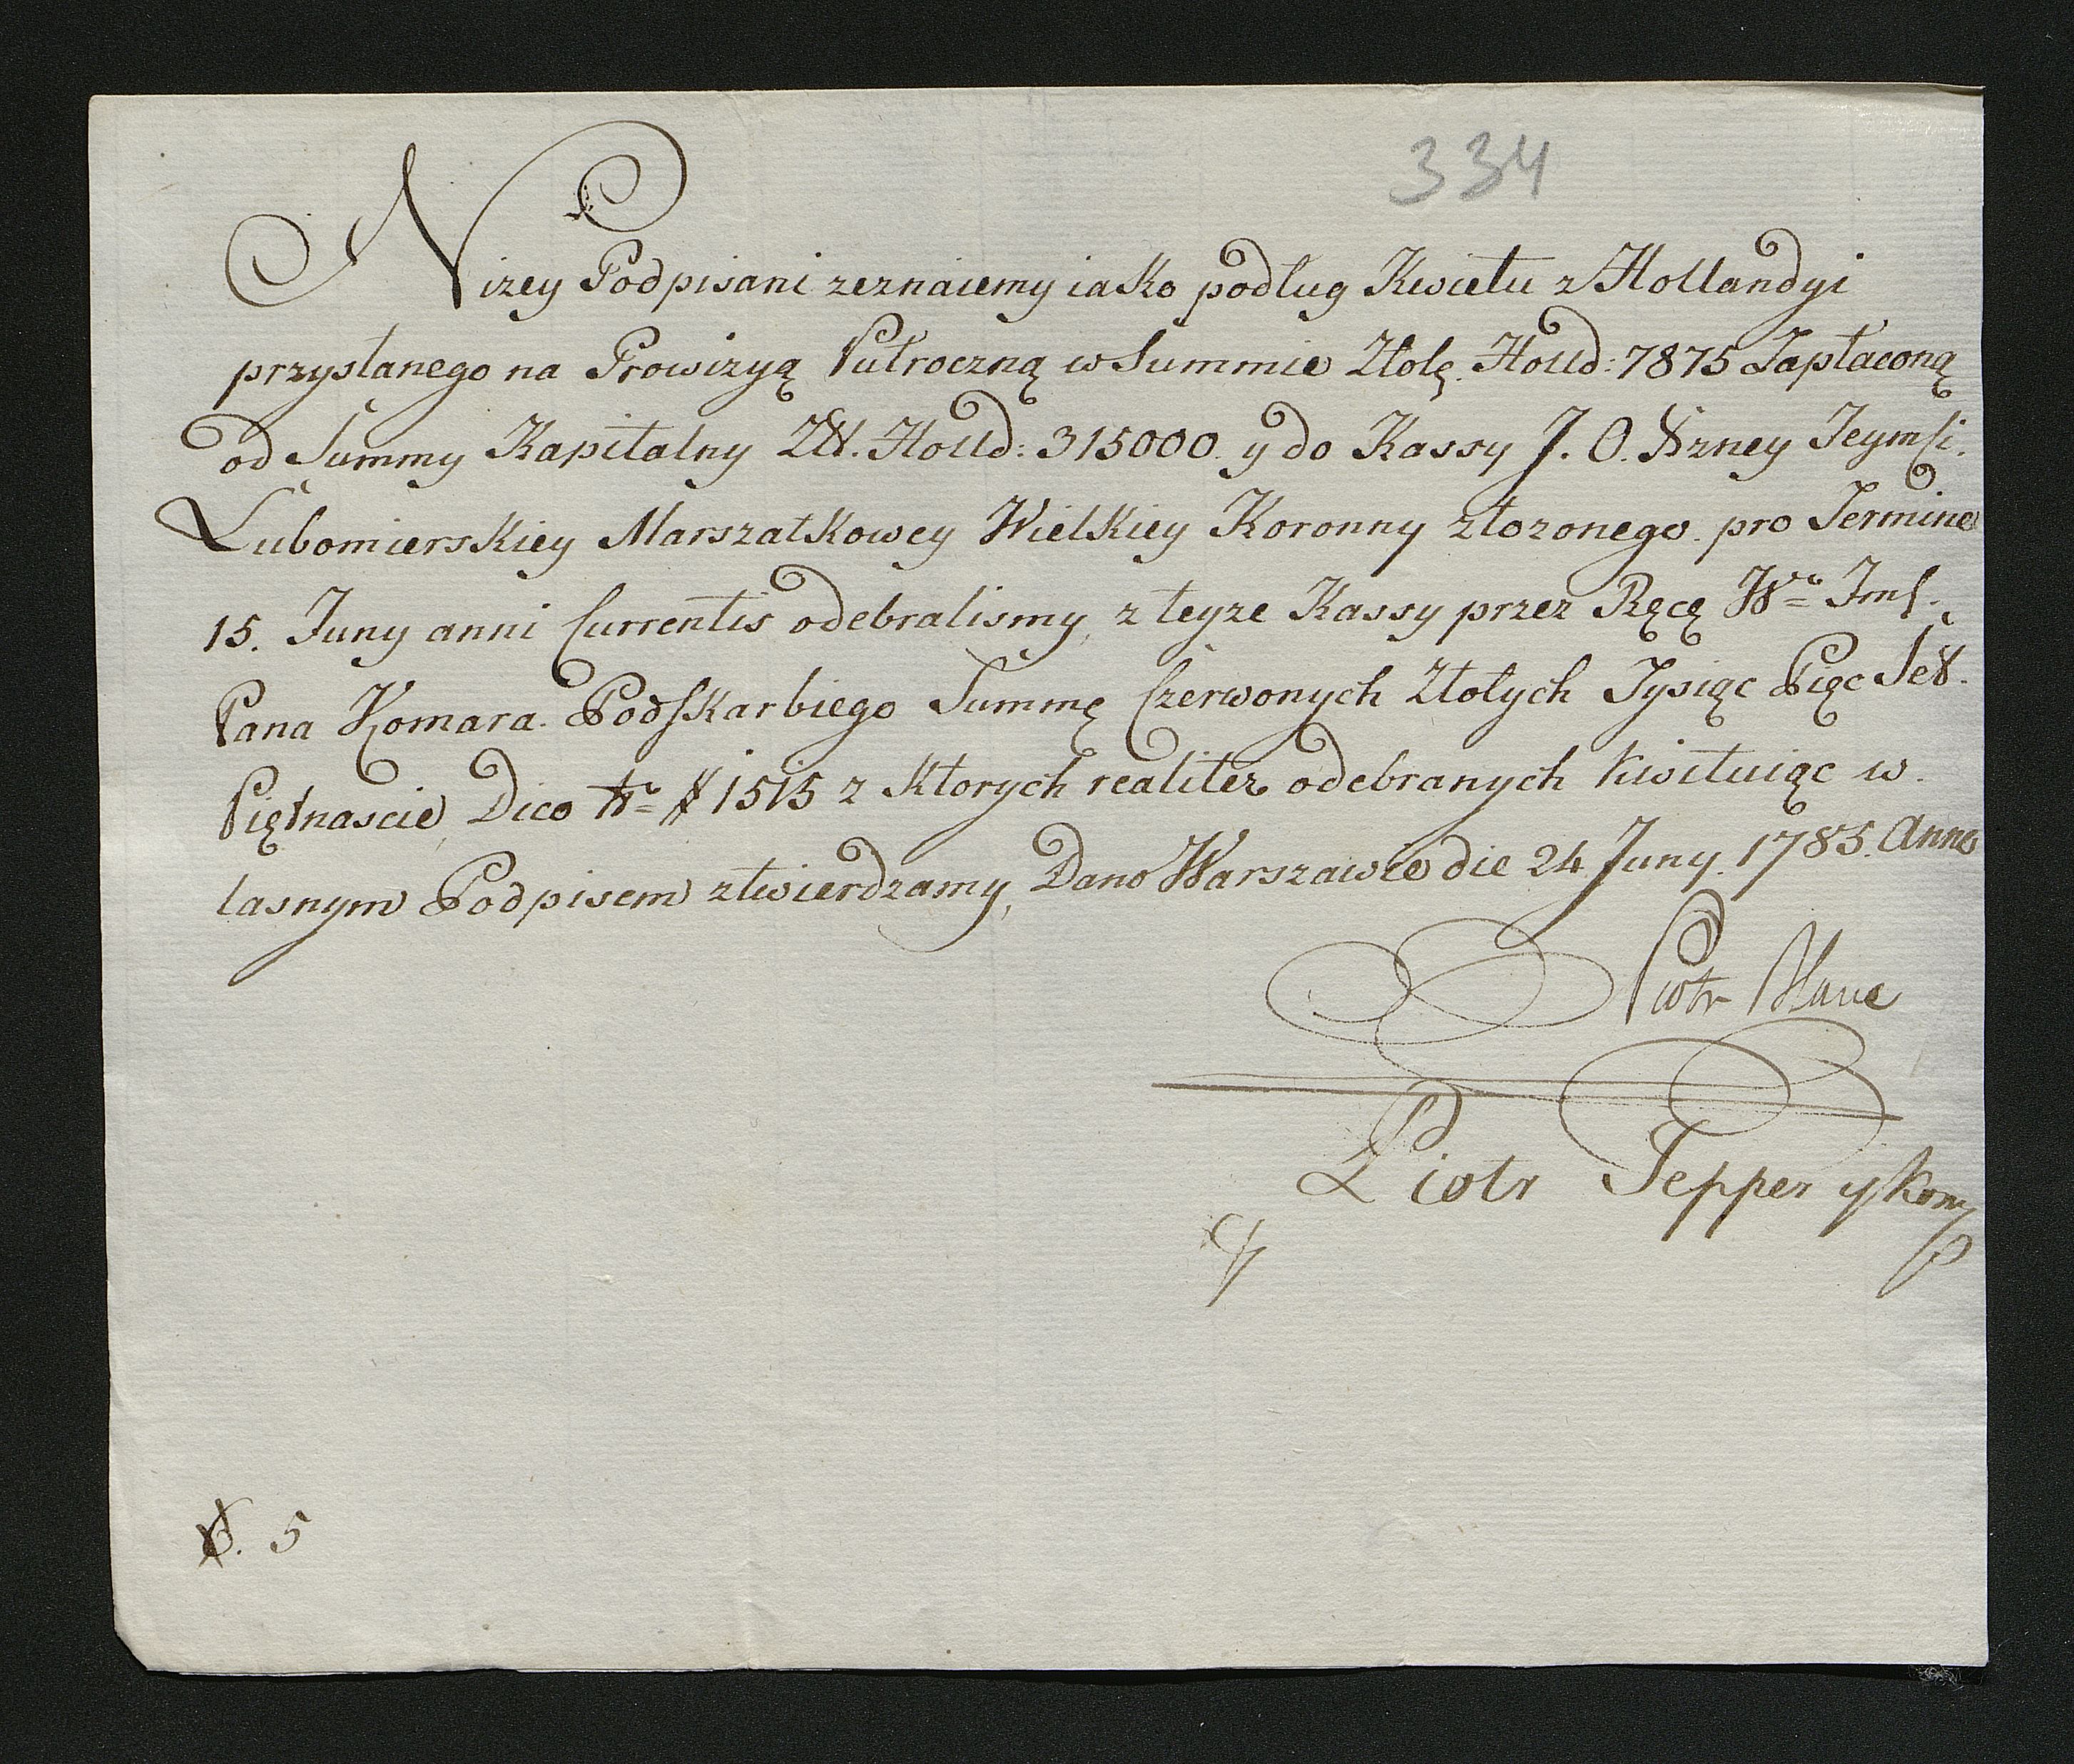 334
Nizey Podpisani zeznaiemy iako podług Kwietu z Hollandyi
przysłanego na Prowizyą Pułroczną w Summie Złotę. Holld: 7875 Zapłaconą
od Summy Kapitalny Złł. Holld: 315000. y do Kassy J. O. Xzney Jeymści.
Lubomierskiey Marszałkowey Wielkiey Koronny złozonego. pro Termino
15. Juny anni Currentis odebralismy, z teyze Kassy przez Ręcę Wo Jmś.
Pana Komara. Podskarbiego Summę Czerwonych Złotych Tysiąc Pięc Set.
Piętnascie, Dico 1515 z Ktorych realiter odebranych kwituiąc w.
lasnym Podpisem ztwierdzamy, Dano Warszawie die 24 Juny. 1785. Anno
Piotr Blanc
Piotr Tepper y Komp
5